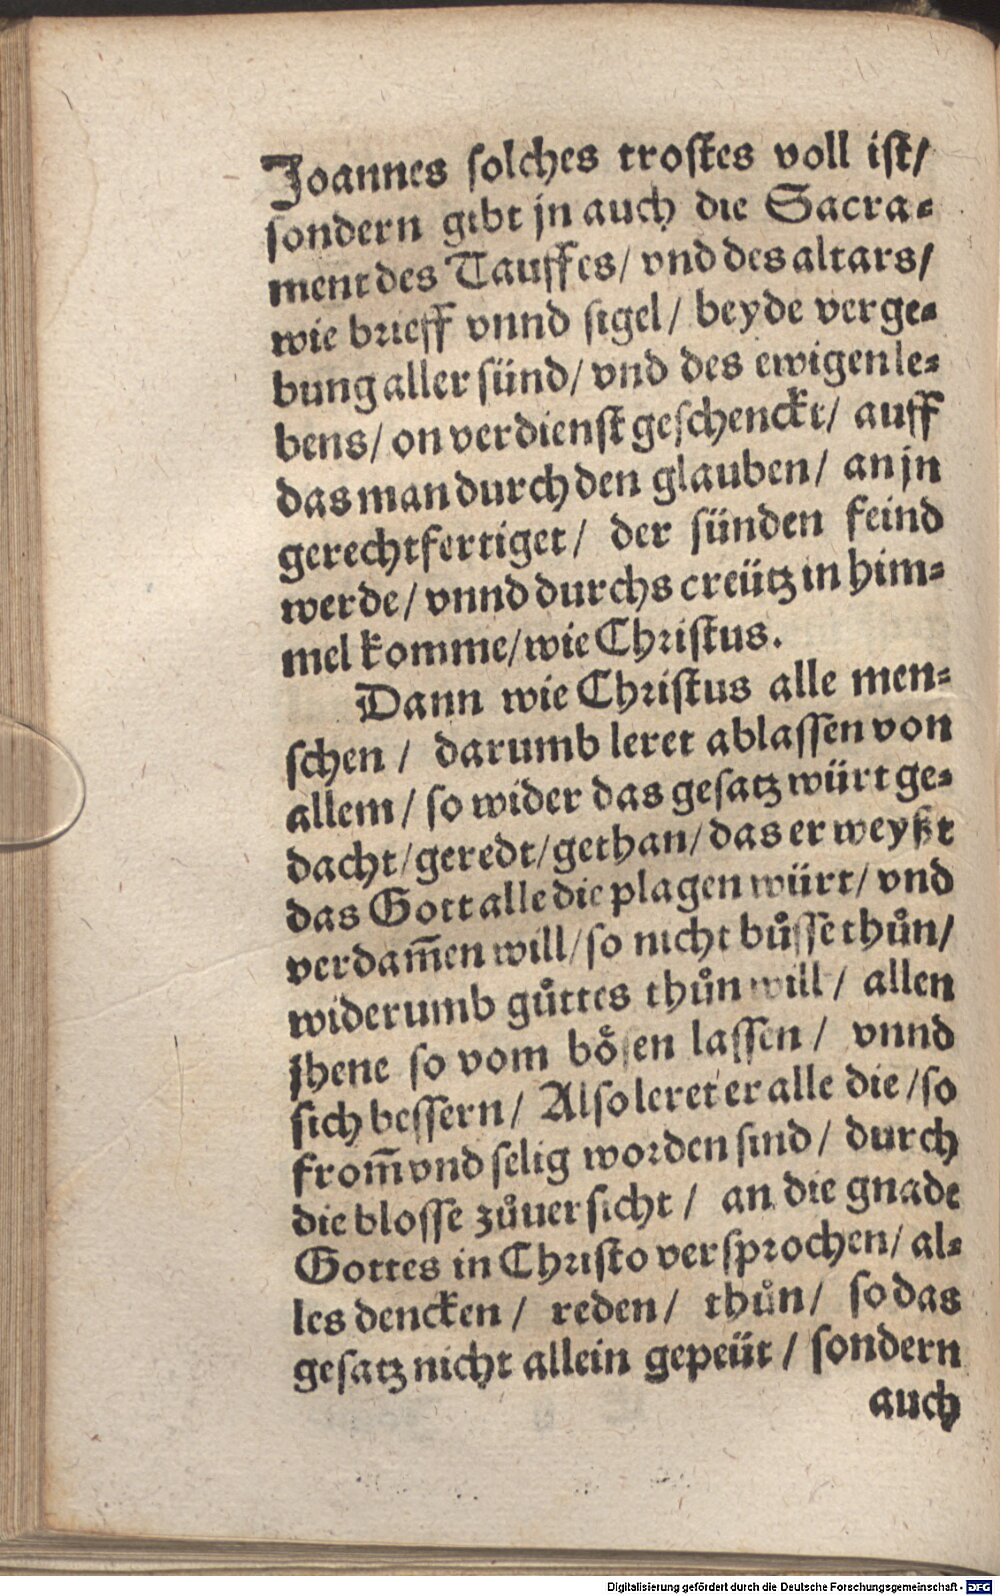 Joannes ſolches troſtes voll iſt/
ſondern gibt jn auch die Sacra⸗
ment des Tauffes/ vnd des altars/
wie brieff vnnd ſigel/ beyde verge⸗
bung aller ſünd/ vnd des ewigen le⸗
bens/ on verdienſt geſchenckt/ auff
das man durch den glauben/ an jn
gerechtfertiget/ der ſünden feind
werde/ vnnd durchs creütz in him⸗
mel komme/ wie Chriſtus.
Dann wie Chriſtus alle men⸗
ſchen / darumb leret ablaſſen von
allem/ ſo wider das geſatz würt ge⸗
dacht/ geredt/ gethan/ das er weyßt
das Gott alle die plagen würt/ vnd
verdam̄en will/ ſo nicht bůſſe thůn/
widerumb gůttes thůn will/ allen
jhene ſo vom böſen laſſen/ vnnd
ſich beſſern/ Alſo leret er alle die/ ſo
from̄ vnd ſelig worden ſind/ durch
die bloſſe zůuerſicht/ an die gnade
Gottes in Chriſto verſprochen/ al⸗
les dencken/ reden/ thůn/ ſo das
geſatz nicht allein gepeüt/ ſondern
auch
Digitalisierung gefördert durch die Deutsche Forschungsgemeinschaft - DFG